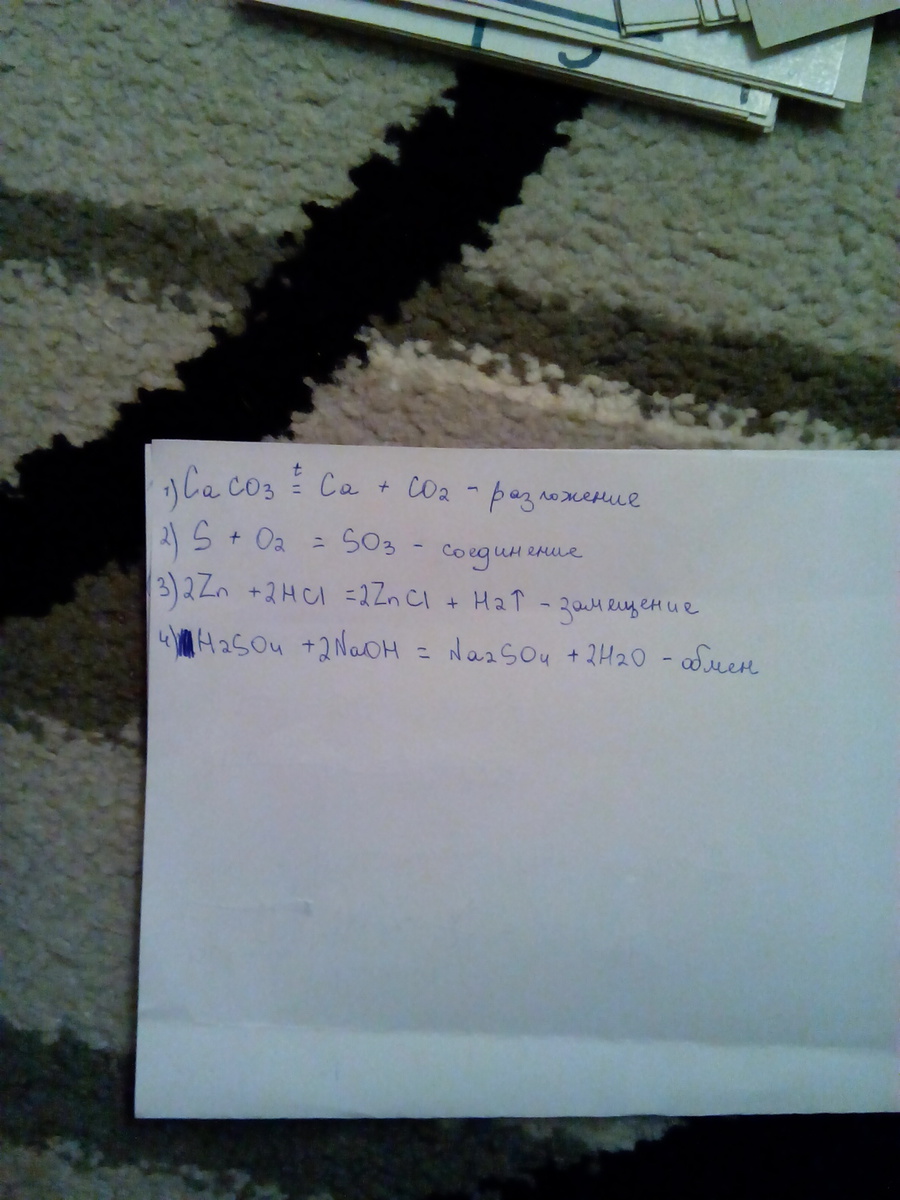 1) CaCO3 t= Ca + CO2 - разложение
2) S + O2 = SO3 - соединение
3) 2Zn + 2HCl = 2ZnCl + H2↑ - замещение
4) H2SO4 + 2NaOH = Na2SO4 + 2H2O - обмен